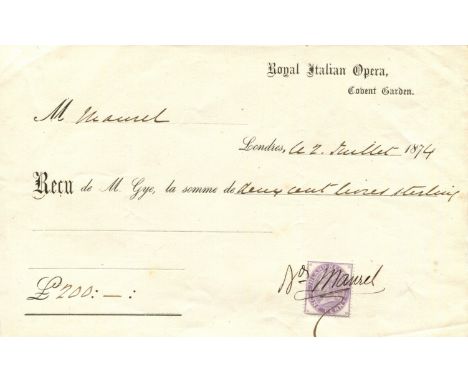 Royal Italian Opera,
Covent Garden.
M Maurel
Londres, le 2 Juillet 1874
Reçu de M. Gye, la somme de deux cent livres sterling
£200:—:
Maurel